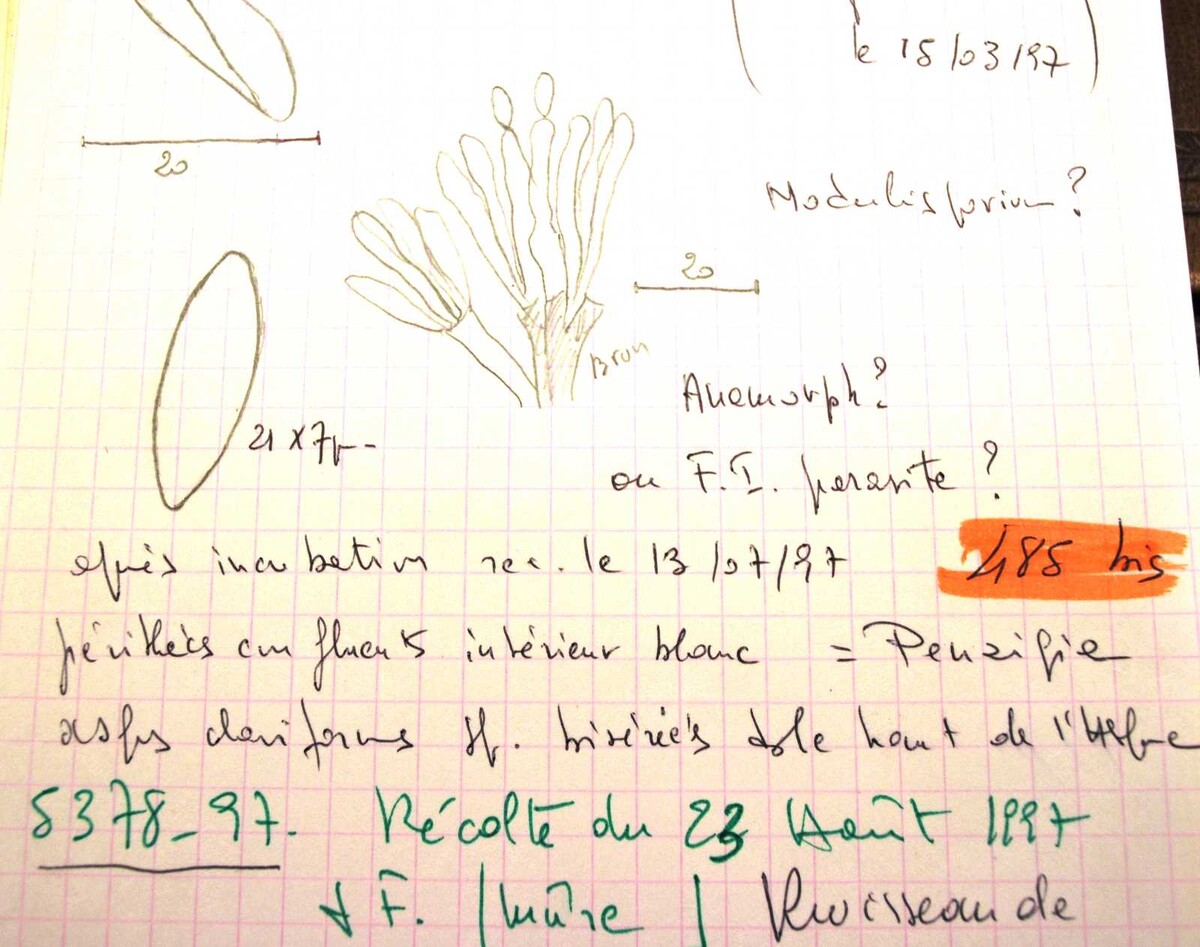 le 15/03/97
20
Modulisporium?
20
Brun
Anamorph?
21 x 7µ
ou F.I. parasite?
après incubation rec. le 13/07/97 485 bis
périthèces confluents intérieur blanc = Penzigia
clariformes sp. bisériées ds le haut de l'
5378-97. Récolté du 23 Août 1997
F. Ruisseau de